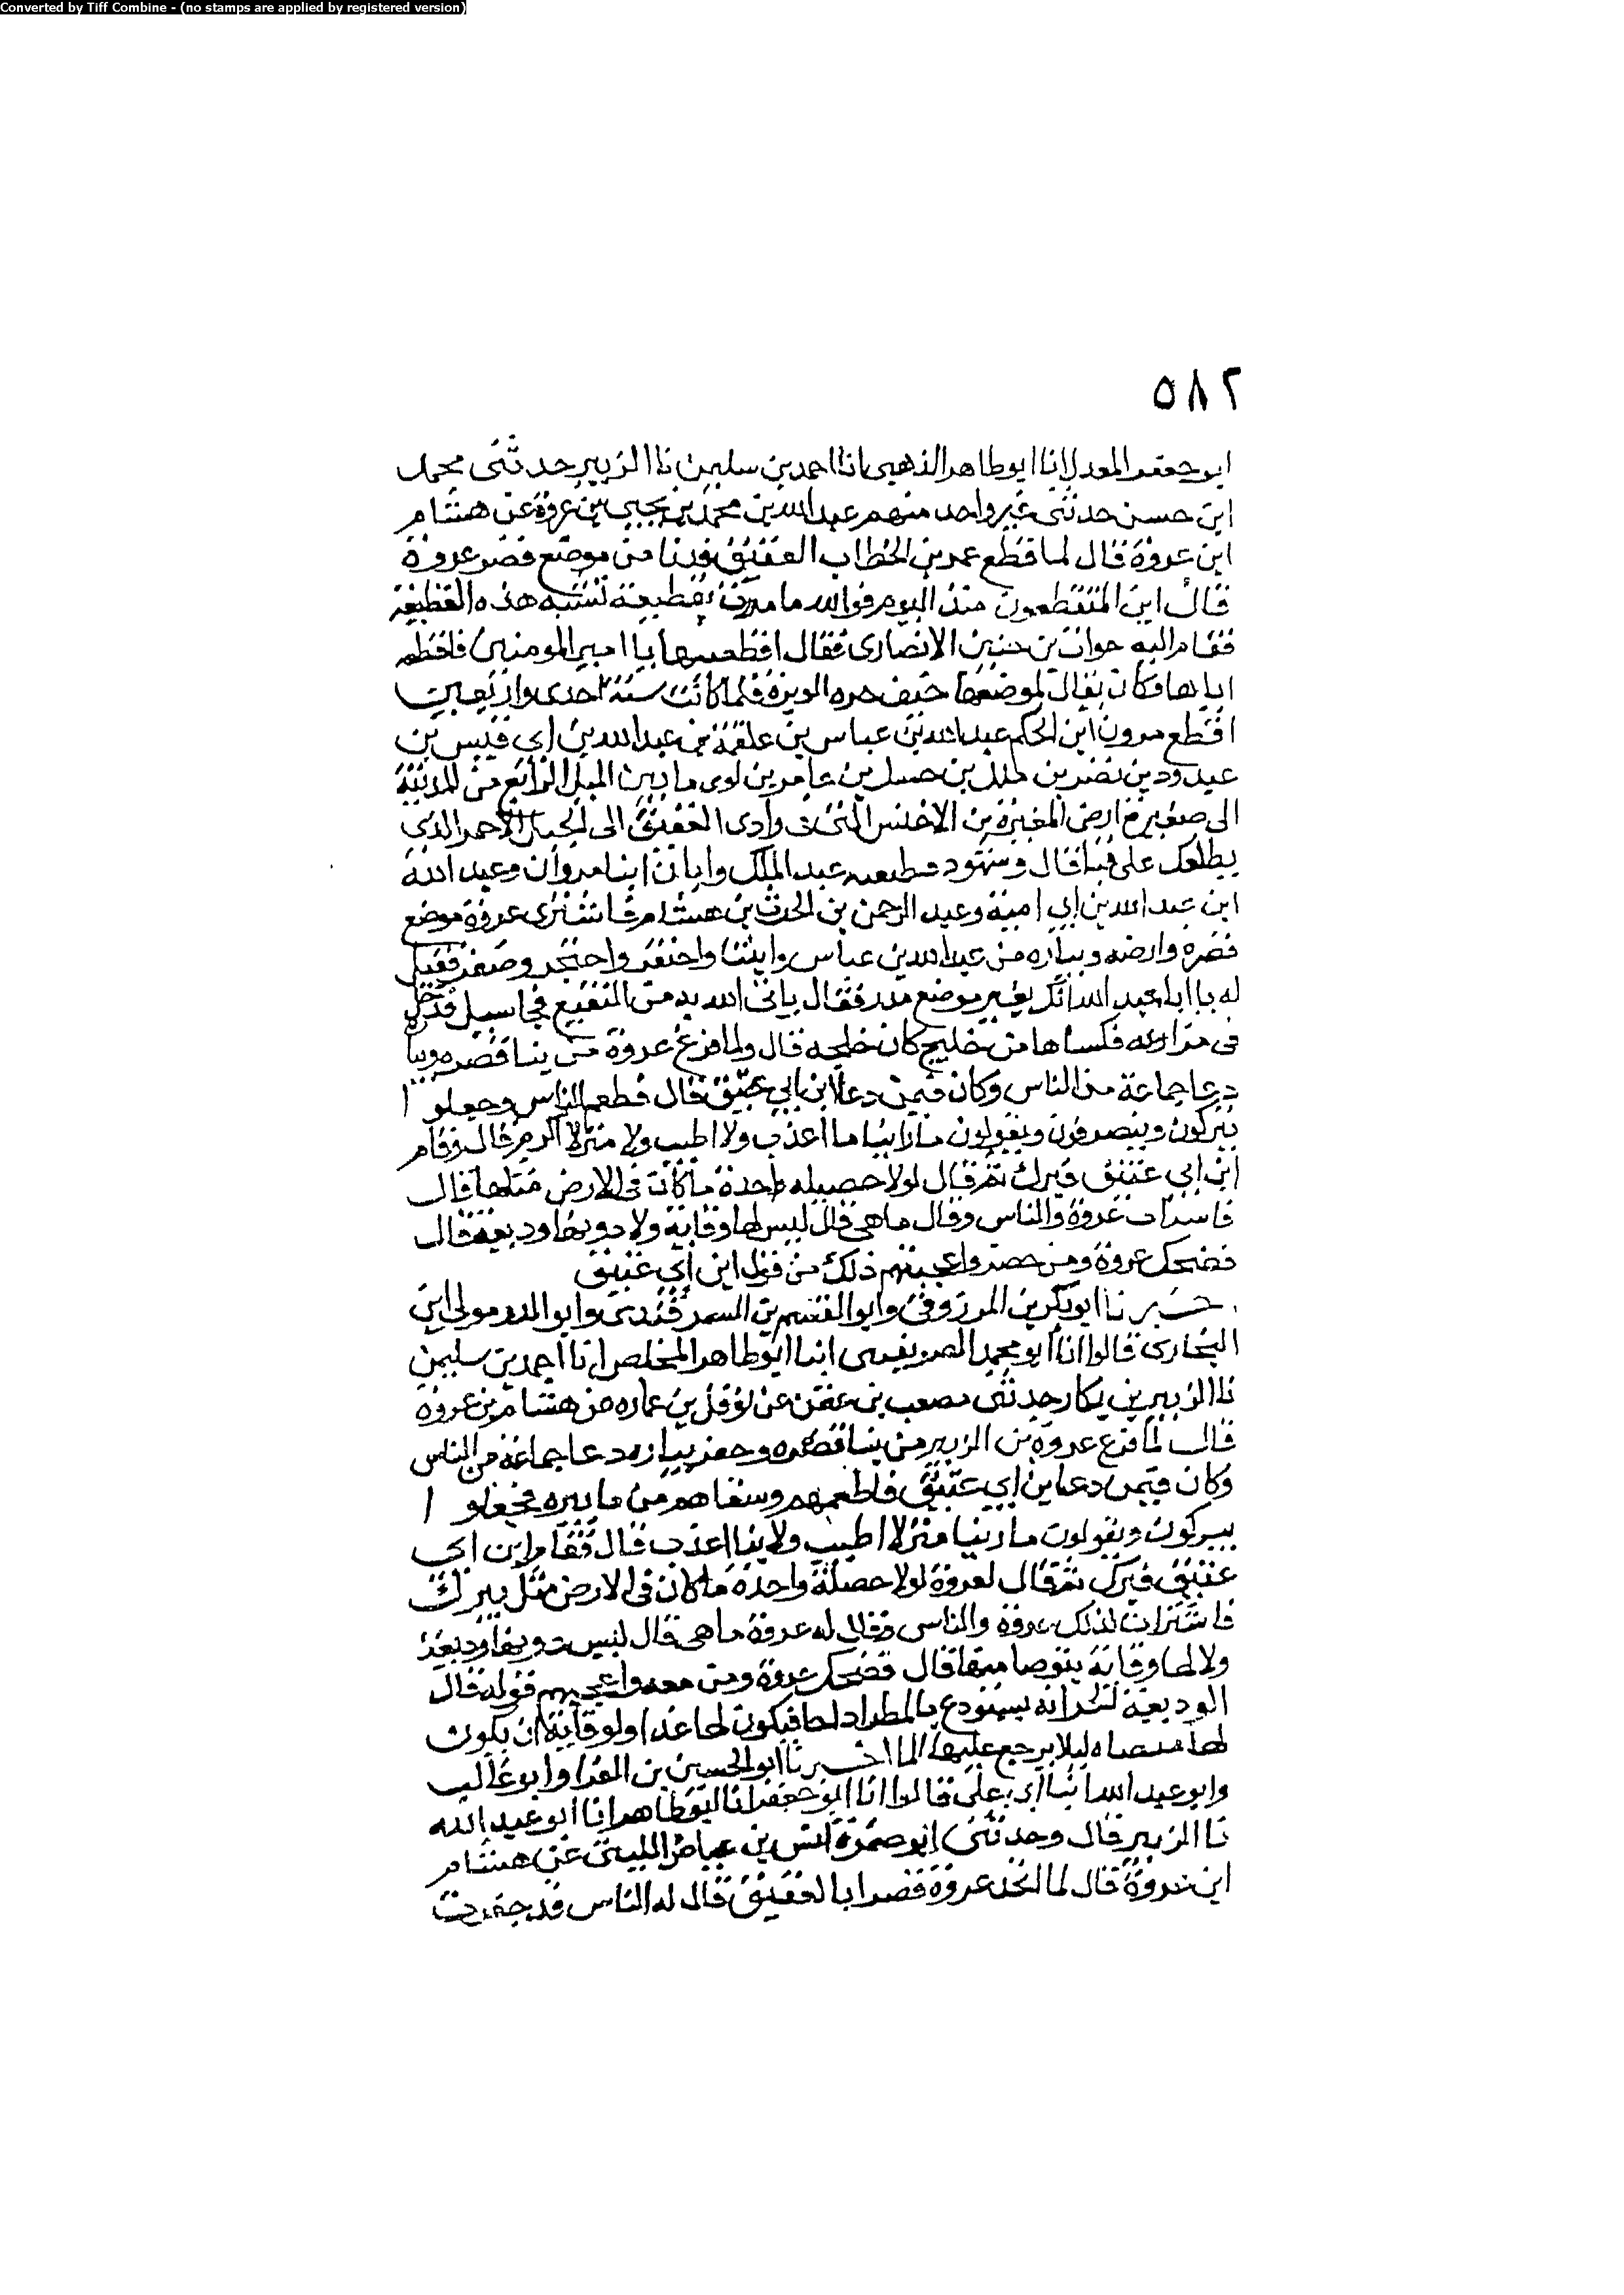 Converted by Tiff Combine - (no stamps are applied by registered version)
٥٨٢
ابو جعفر المعدل انا ابو طاهر الذهبي انا احمد بن سليمن نا الزبير حدثني محمد
ابن حسن حدثني غير واحد منهم عبد الله بن محمد بن يحيى بن عروة عن هشام
ابن عروة قال لما قطع عمر بن الخطاب العقيق فدنا من موضع قصر عروة
قال اين المستقطعون منذ اليوم فوالله ما مررت بقطيعة تشبه هذه القطيعة
فقام اليه خوات بن جبير الانصاري فقال اقطعنيها يا امير المومنين فاقطعه
اياها وكان يقال لموضعها خيف حره الوبرة فلما كانت سنة احدى واربعين
اقطع مرون ابن الحكم عبد الله بن عباس بن علقمة بن عبد الله بن ابي قيس بن
عبد ود بن نضر بن ملك بن حسل بن عامر بن لوى ما بين الميل الرابع من المدينة
الى ضفيرة ارض المغيرة بن الاخنس التي وادي العقيق الى الجبل الاحمر الذي
يطلعك على قبا قال وشهود قطيعته عبد الملك وابان ابنا مروان وعبد الله
ابن عبد الله بن ابي امية وعبد الرحمن بن الحرث بن هشام فاشترى عروة موضع
قصره وارضه وبياره من عبد الله بن عباس وابتنا واحتفر واحتجر وضفر فقيل
له يا ابا عبد الله انك بغير موضع مدر فقال ياتي الله به من النقيع فجا سيل فدخل
في مزارعه فكساها من خليج كان خلجه قال ولما فرغ عروة من بنا قصره وبياره
دعا جماعة من الناس وكان فيمن دعا ابن ابي عتيق قال فطعم الناس وجعلوا
يبركون وينصرفون ويقولون ما راينا ما اعذب ولا اطيب ولا منزلا اكرم قال وقام
ابن ابي عتيق فبرك ثم قال لولا خصيله واحدة ما كانت في الارض مثلها قال
فاشتدت عروة والناس وقال ما هي قال ليس لها وقاية ولا دونها وديعة قال
فضحك عروة ومن حضر واعجبهم ذلك من قول ابن ابي عتيق
اخبرنا ابو بكر بن المرزوقي وابو القسم بن السمرقندي وابو الدر مولى ابن
البخاري قالوا انا ابو محمد الصريفيني انبا ابو طاهر المخلص انا احمد بن سليمن
نا الزبير بن بكار حدثني مصعب بن عثمن عن نوفل بن عماره عن هشام بن عروة
قال لما فرغ عروة بن الزبير من بنا قصره وحفر بياره دعا جماعة من الناس
وكان فيمن دعا بن ابي عتيق فاطعمهم وسقاهم من ما بيره فجعلوا
يبركون ويقولون ما رينا منزلا اطيب ولا بنا اعذب قال فقام ابن ابي
عتيق فبرك ثم قال لعروة لولا خصلة واحدة ما كان في الارض مثل بيرك
فاشتزات لذلك عروة والناس فقال له عروة ما هي قال ليس دونها وديعة
ولا لها وقاية يتوضا منها قال فضحك عروة ومن معه واعجبهم قوله قال
الوديعة الخزانه يستودع بالمطراد لها فيكون لها غدا ولو قاية ان يكون
لها ميضاه ليلا يرجع عليها الما اخبرنا ابو الحسين بن الفرا وابو غالب
وابو عبد الله ابنا ابي علي قالوا انا ابو جعفر انا ابو طاهر انا ابو عبد الله
نا الزبير قال وحدثني ابو ضمرة انس بن عياض الليثي عن هشام
ابن عروة قال لما اتخذ عروة قصرا بالعقيق قال له الناس قد جفوت